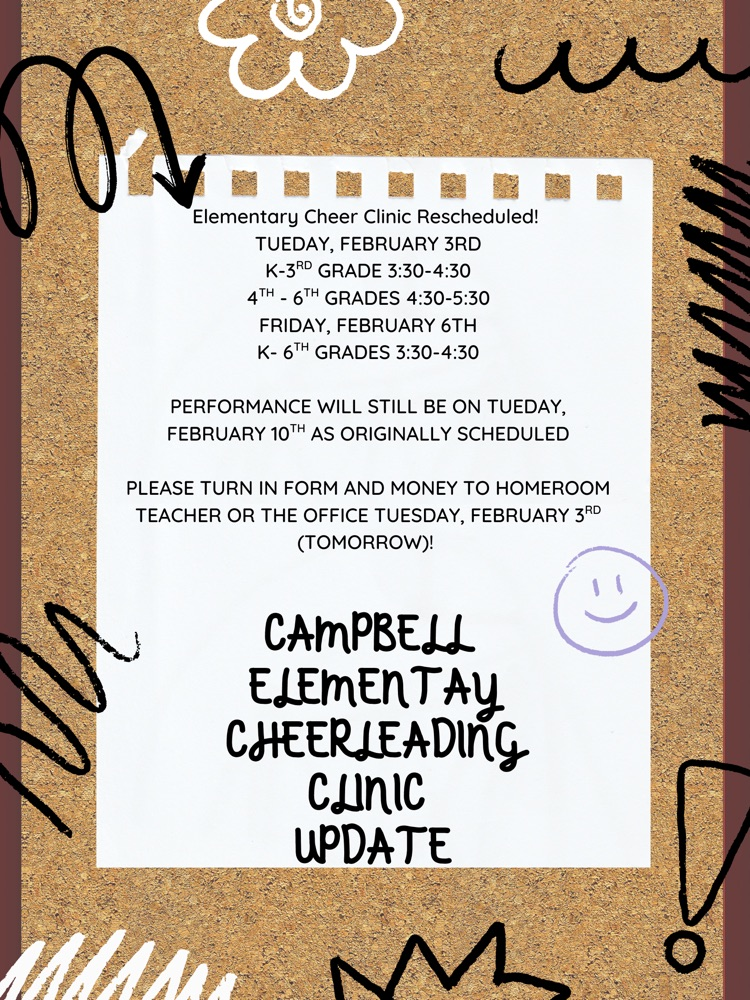 Elementary Cheer Clinic Rescheduled!
TUEDAY, FEBRUARY 3RD
K-3RD GRADE 3:30-4:30
4TH - 6TH GRADES 4:30-5:30
FRIDAY, FEBRUARY 6TH
K- 6TH GRADES 3:30-4:30
PERFORMANCE WILL STILL BE ON TUEDAY,
FEBRUARY 10TH AS ORIGINALLY SCHEDULED
PLEASE TURN IN FORM AND MONEY TO HOMEROOM
TEACHER OR THE OFFICE TUESDAY, FEBRUARY 3RD
(TOMORROW)!
CAMPBELL
ELEMENTAY
CHEERLEADING
CLINIC
UPDATE